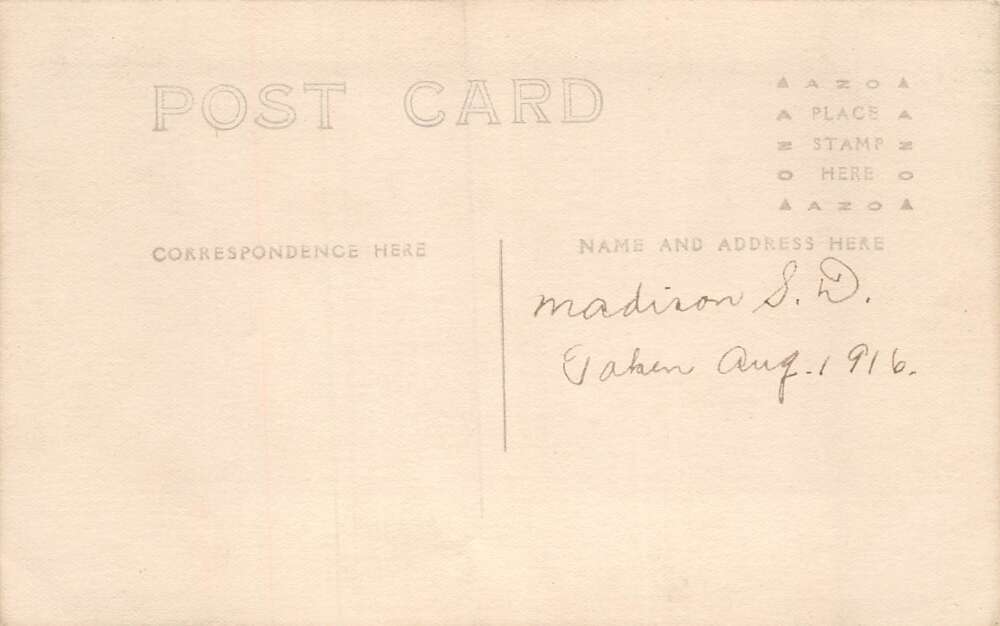 POST CARD
▲ A Z O ▲
A PLACE A
Z STAMP Z
O HERE O
▲ A Z O ▲
CORRESPONDENCE HERE
NAME AND ADDRESS HERE
Madison S. D.
Taken Aug. 1916.